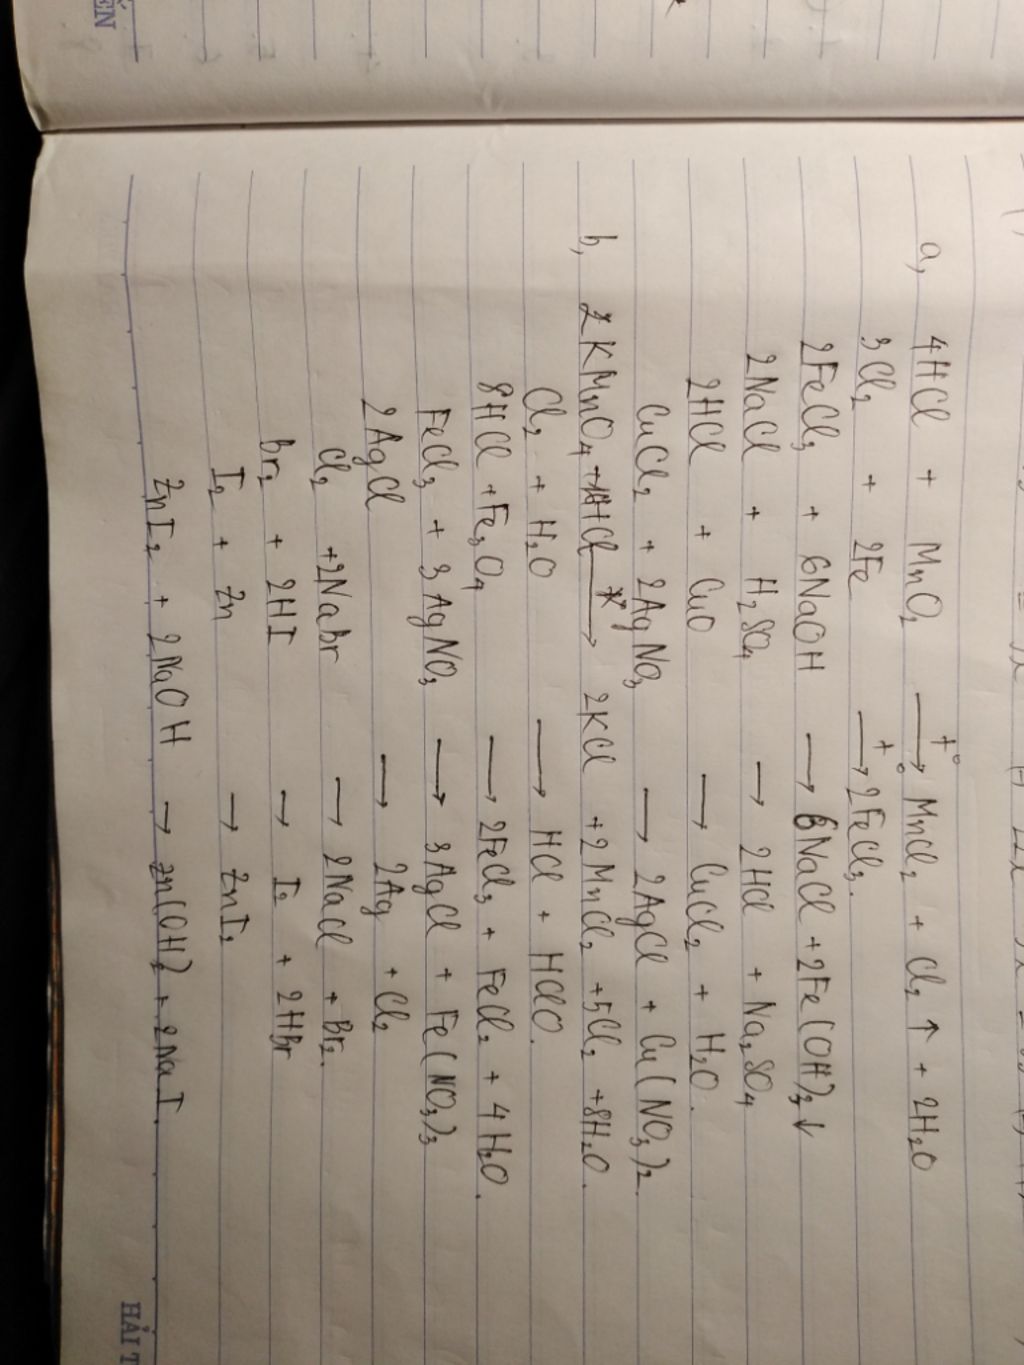 a, 4HCl + MnO₂ —t°→ MnCl₂ + Cl₂ ↑ + 2H₂O
3Cl₂ + 2Fe —t°→ 2FeCl₃.
2FeCl₃ + 6NaOH → 6NaCl + 2Fe(OH)₃ ↓
2NaCl + H₂SO₄ → 2HCl + Na₂SO₄
2HCl + CuO → CuCl₂ + H₂O.
CuCl₂ + 2AgNO₃ → 2AgCl + Cu(NO₃)₂.
b, 2KMnO₄ + 16HCl → 2KCl + 2MnCl₂ + 5Cl₂ + 8H₂O.
Cl₂ + H₂O → HCl + HClO.
8HCl + Fe₃O₄ → 2FeCl₃ + FeCl₂ + 4H₂O.
FeCl₃ + 3AgNO₃ → 3AgCl + Fe(NO₃)₃
2AgCl → 2Ag + Cl₂
Cl₂ + 2NaBr → 2NaCl + Br₂.
Br₂ + 2HI → I₂ + 2HBr
I₂ + Zn → ZnI₂
ZnI₂ + 2NaOH → Zn(OH)₂ + 2NaI.